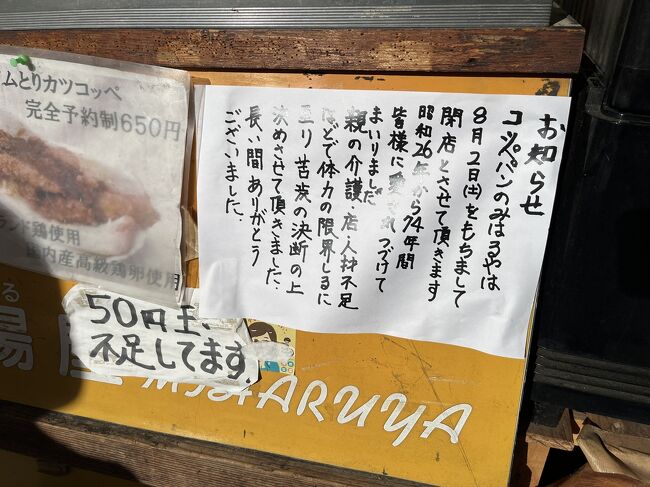 お知らせ
コッペパンのみはるやは
8月2日(土)をもちまして
閉店とさせて頂きます
昭和26年から74年間
皆様に愛されつづけて
まいりました。
親の介護、店・人材不足
などで体力の限界
苦渋の決断の上
決めさせて頂きました。
長い間ありがとう
ございました。
ムとりカツコッペ
完全予約制650円
ランド鶏使用
国内産高級鶏卵使用
50円玉、
不足してます。
る
屋
MIHARUYA